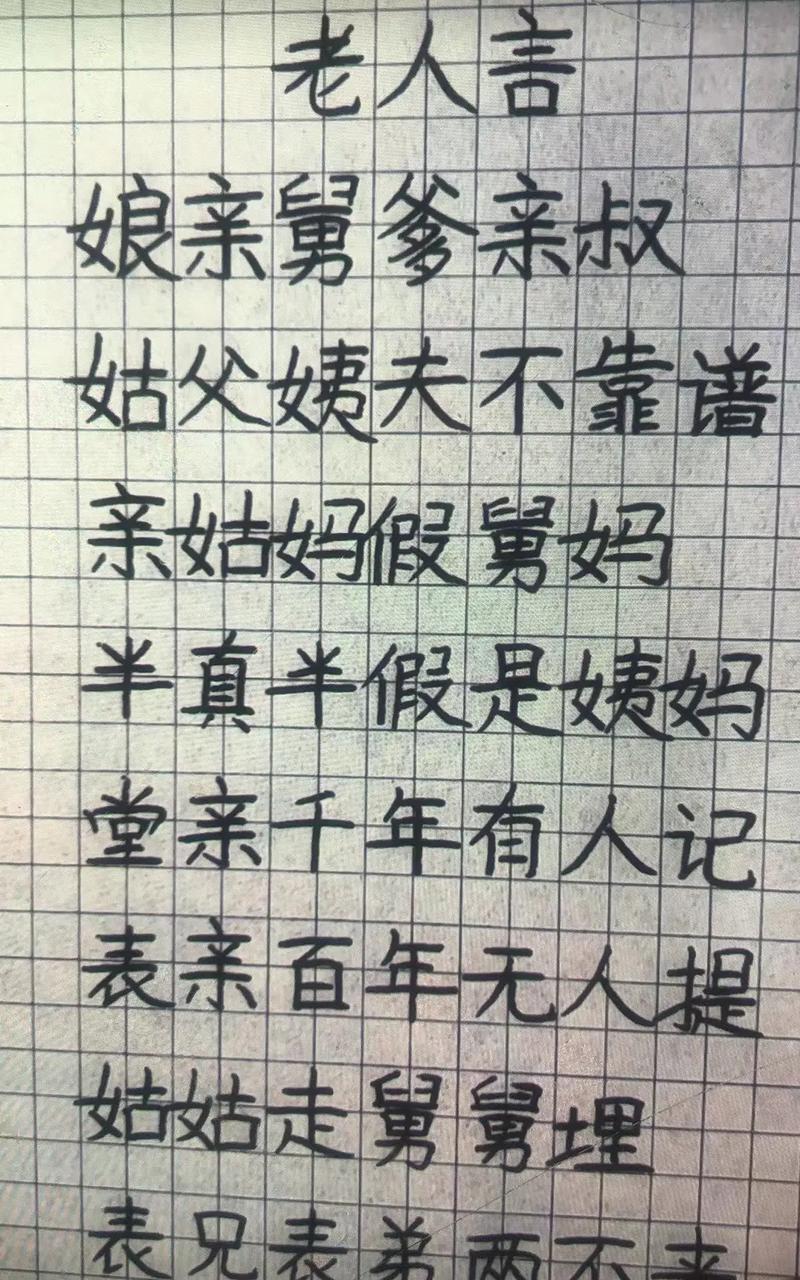 老人言
娘亲舅爹亲叔
姑父姨夫不靠谱
亲姑妈假舅妈
半真半假是姨妈
堂亲千年有人记
表亲百年无人提
姑姑走舅舅埋
表兄表弟两不来